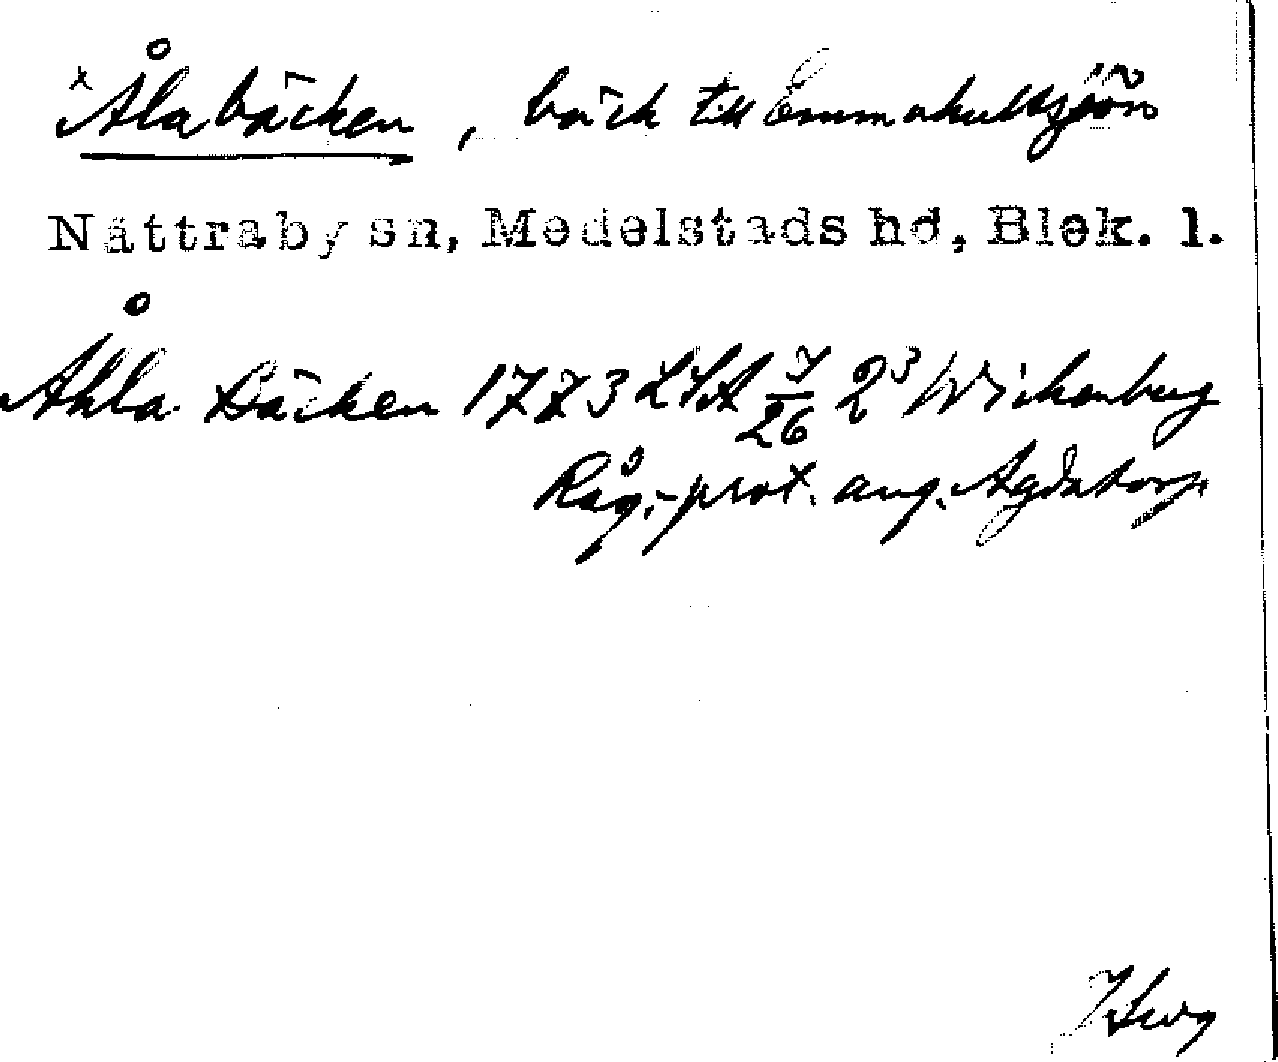 ˣÅlabäcken, bäck till Emmakultsjön
Nättraby sn, Medelstads hd, Blek. l.
Åhla Bäcken 1773 LSA 7/26 2³ Wickenberg
Råg.-prot. ang. Agdatorp